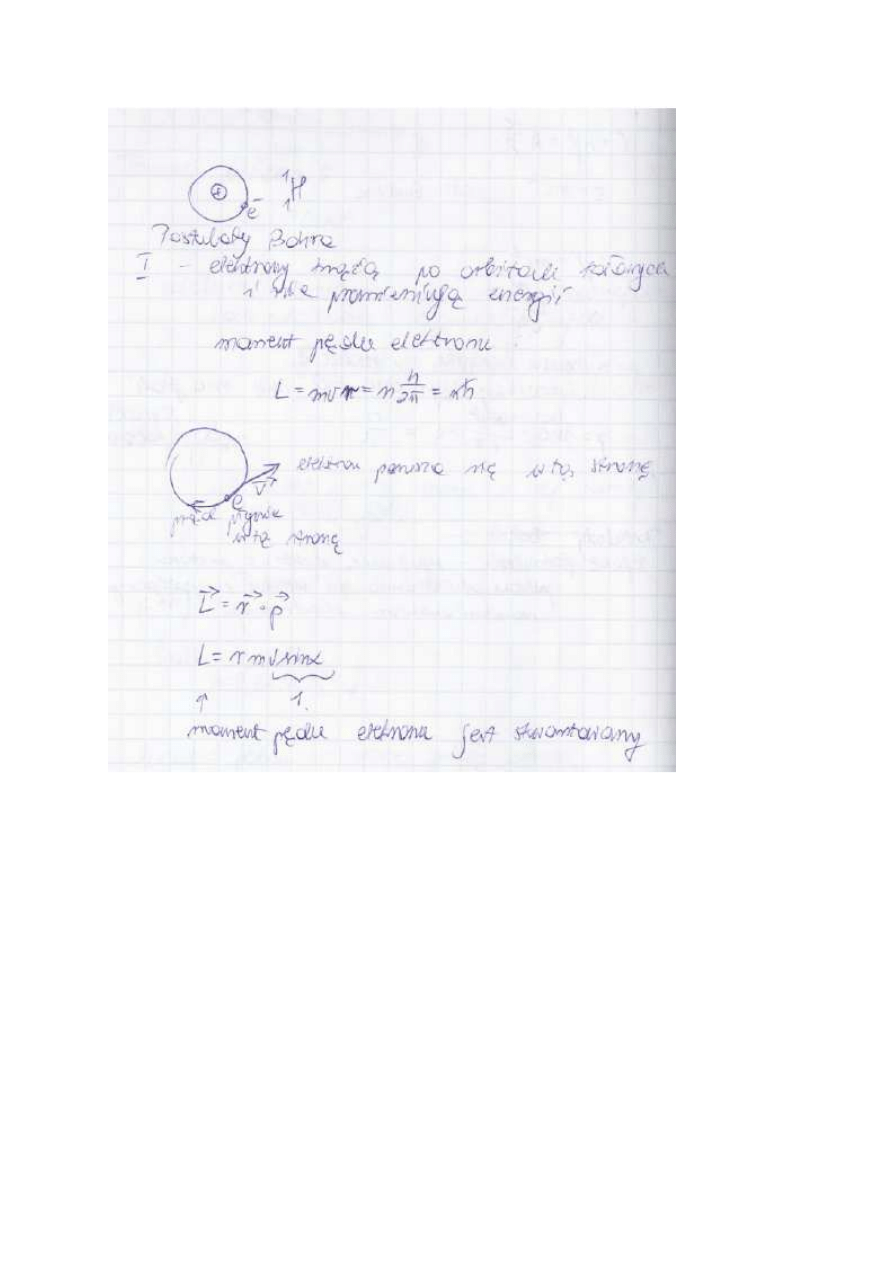 ⊕ e⁻ ¹₁H
Postulaty Bohra
I - elektrony krążą po orbitach kołowych
i nie promieniują energii
moment pędu elektronu :
L = mvr = n h/2π = nħ
elektron porusza się w tą stronę
v⃗ e
prąd płynie
w tą stronę
L⃗ = r⃗ · p⃗
L = r m v sinα
↑ 1.
moment pędu elektronu jest skwantowany